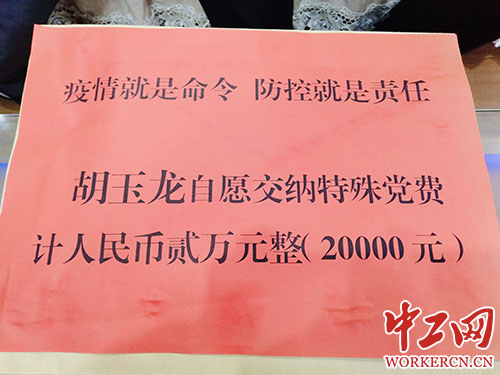 疫情就是命令 防控就是责任
胡玉龙自愿交纳特殊党费
计人民币贰万元整(20000元)
中工网
WORKERCN.CN